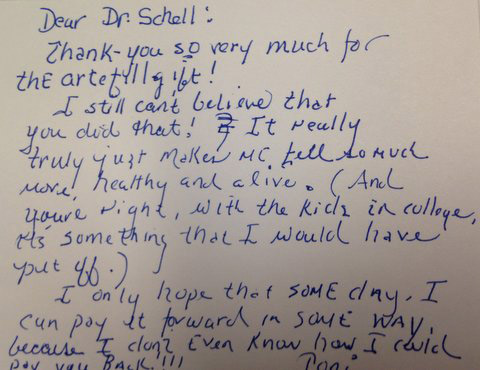 Dear Dr. Schell:
Thank-you so very much for
the artefill gift!
I still can't believe that
you did that! It really
truly just makes me feel so much
more, healthy and alive. (And
you're right, with the kids in college,
it's something that I would have
put off.)
I only hope that some day, I
can pay it forward in some way,
because I don't even know how I could
pay you back!!!